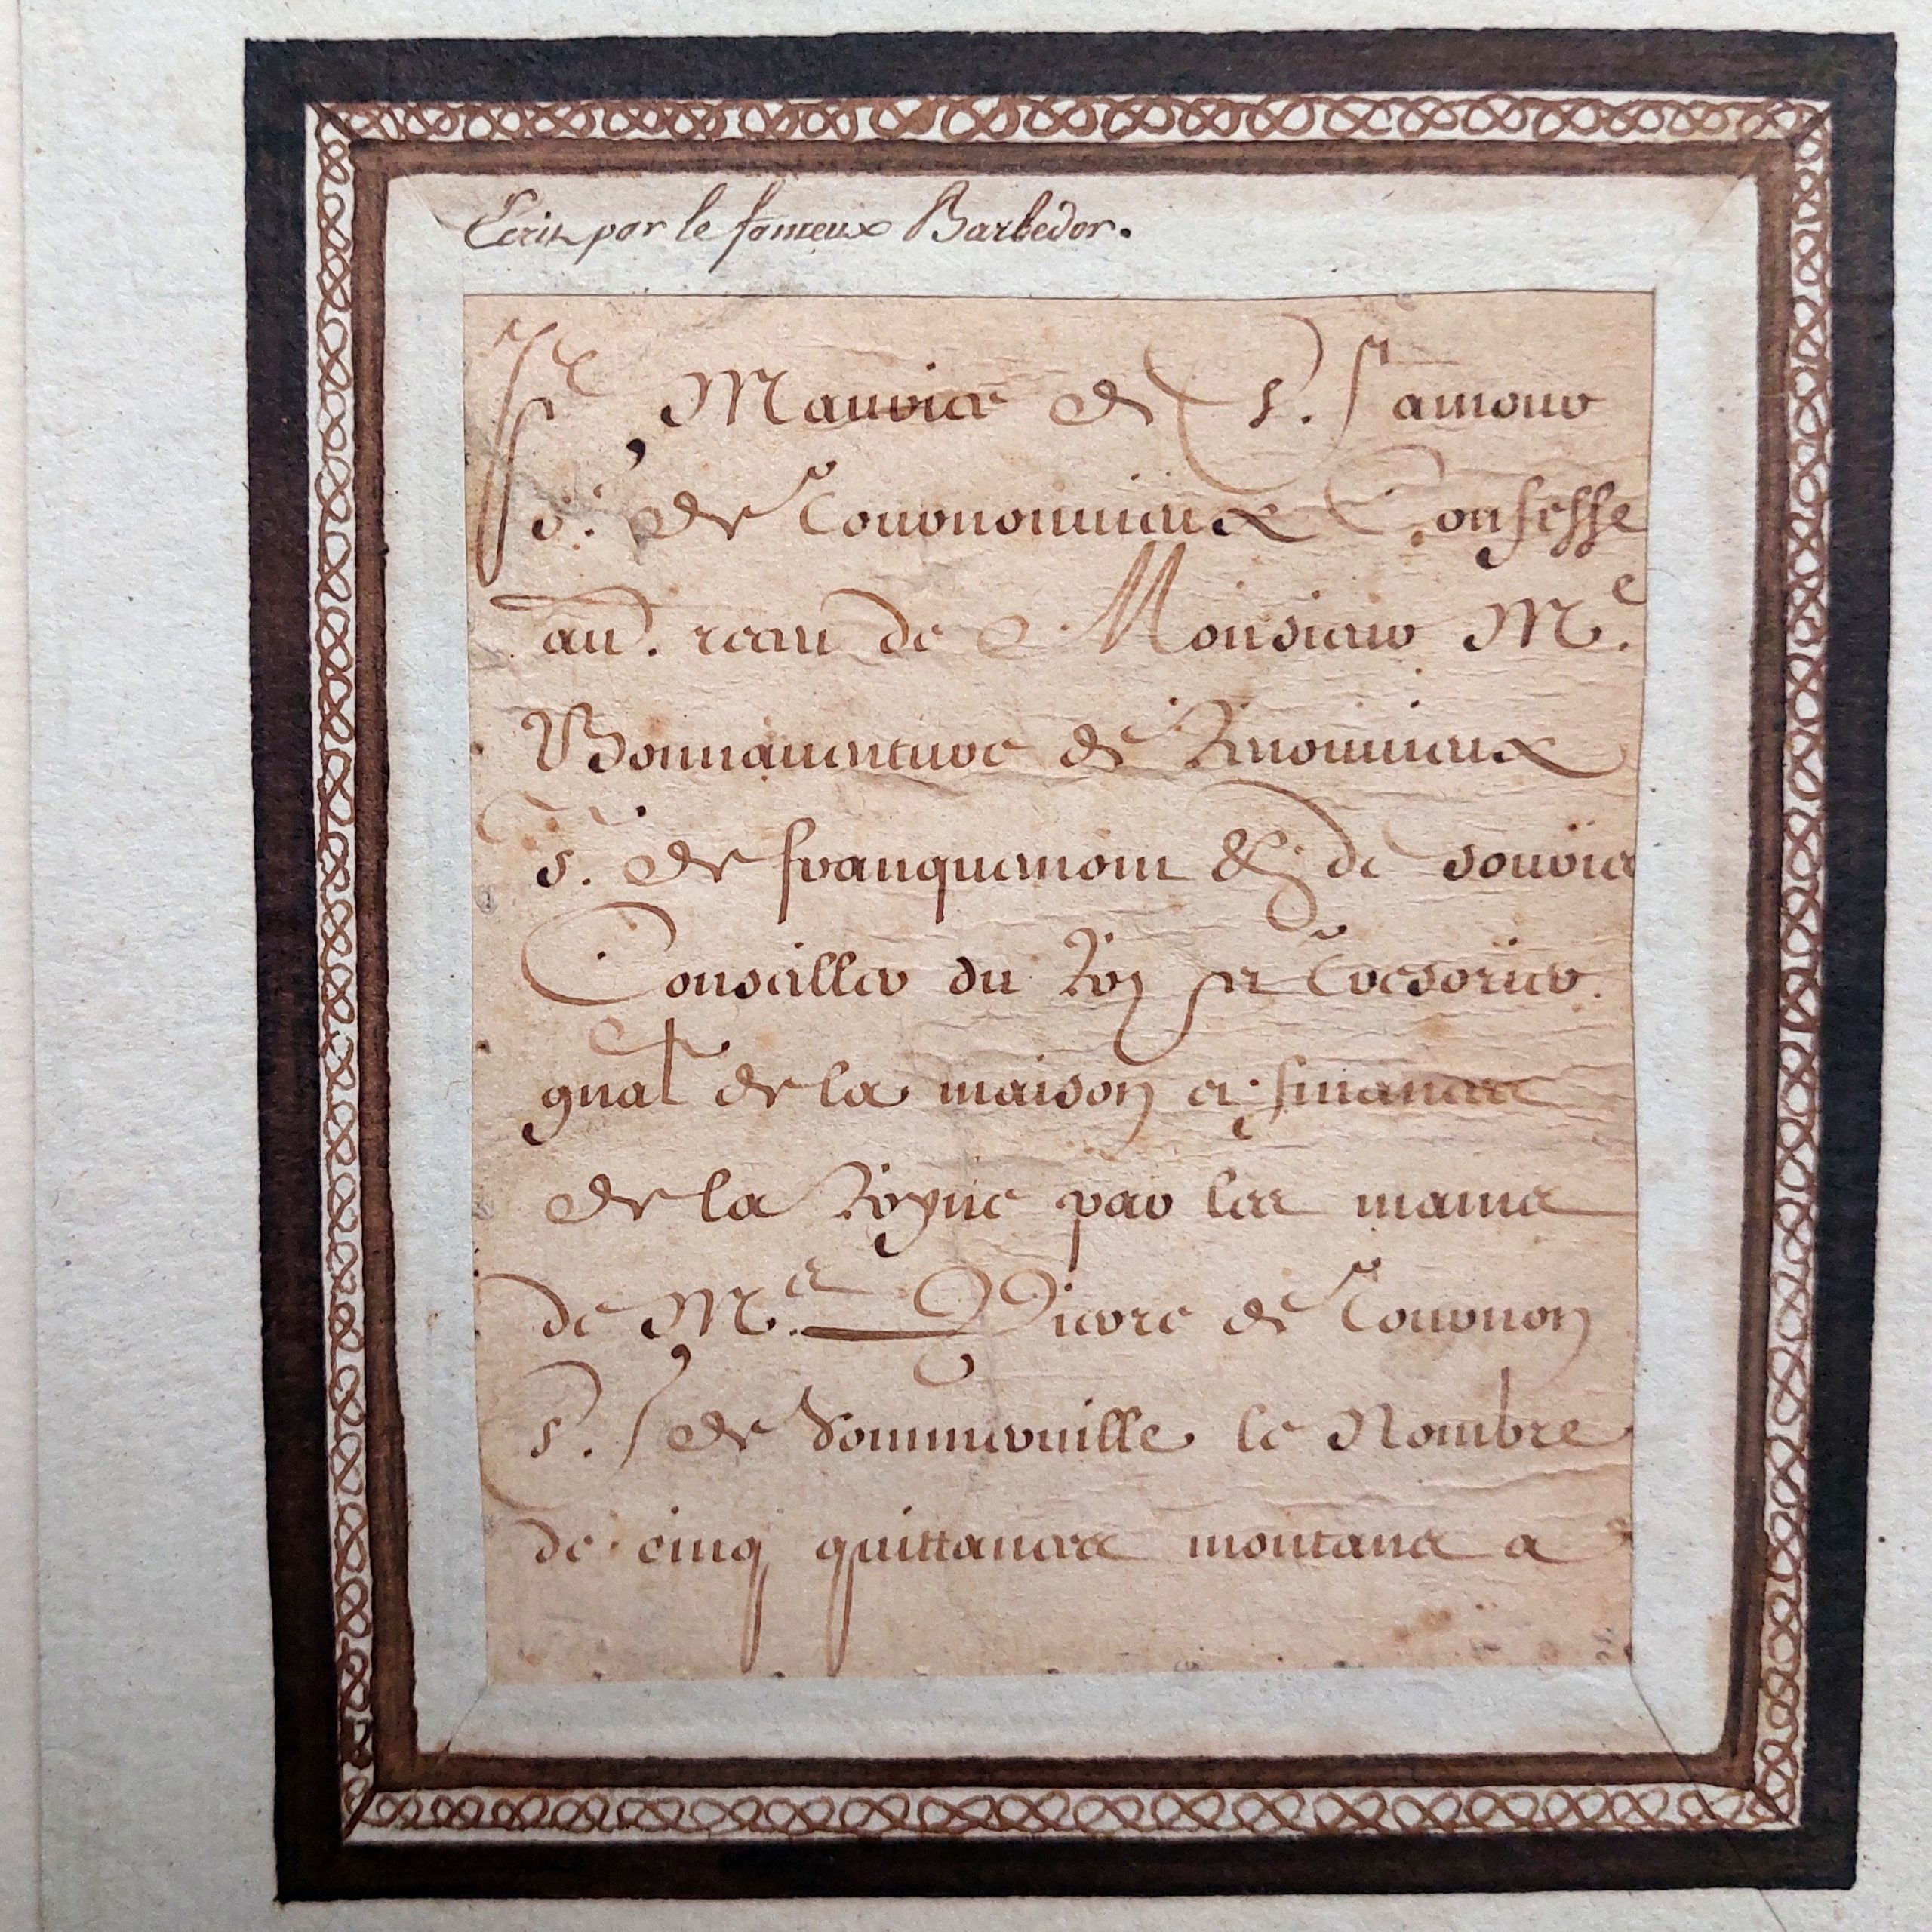 Ecrit par le fameux Barbedor.
Je, Maurice de St. Lamour
Sr. de Tournonnieux Confesse
auoir receu de Monsieur Me.
Bonnauenture de
Sr. de franquemont & de
Conseiller du Roy et Tresorier
gnal de la maison et finances
de la Royne par les mains
de Me. Pierre de Tournon
Sr. de Sommeuille le Nombre
de cinq quittances montans a